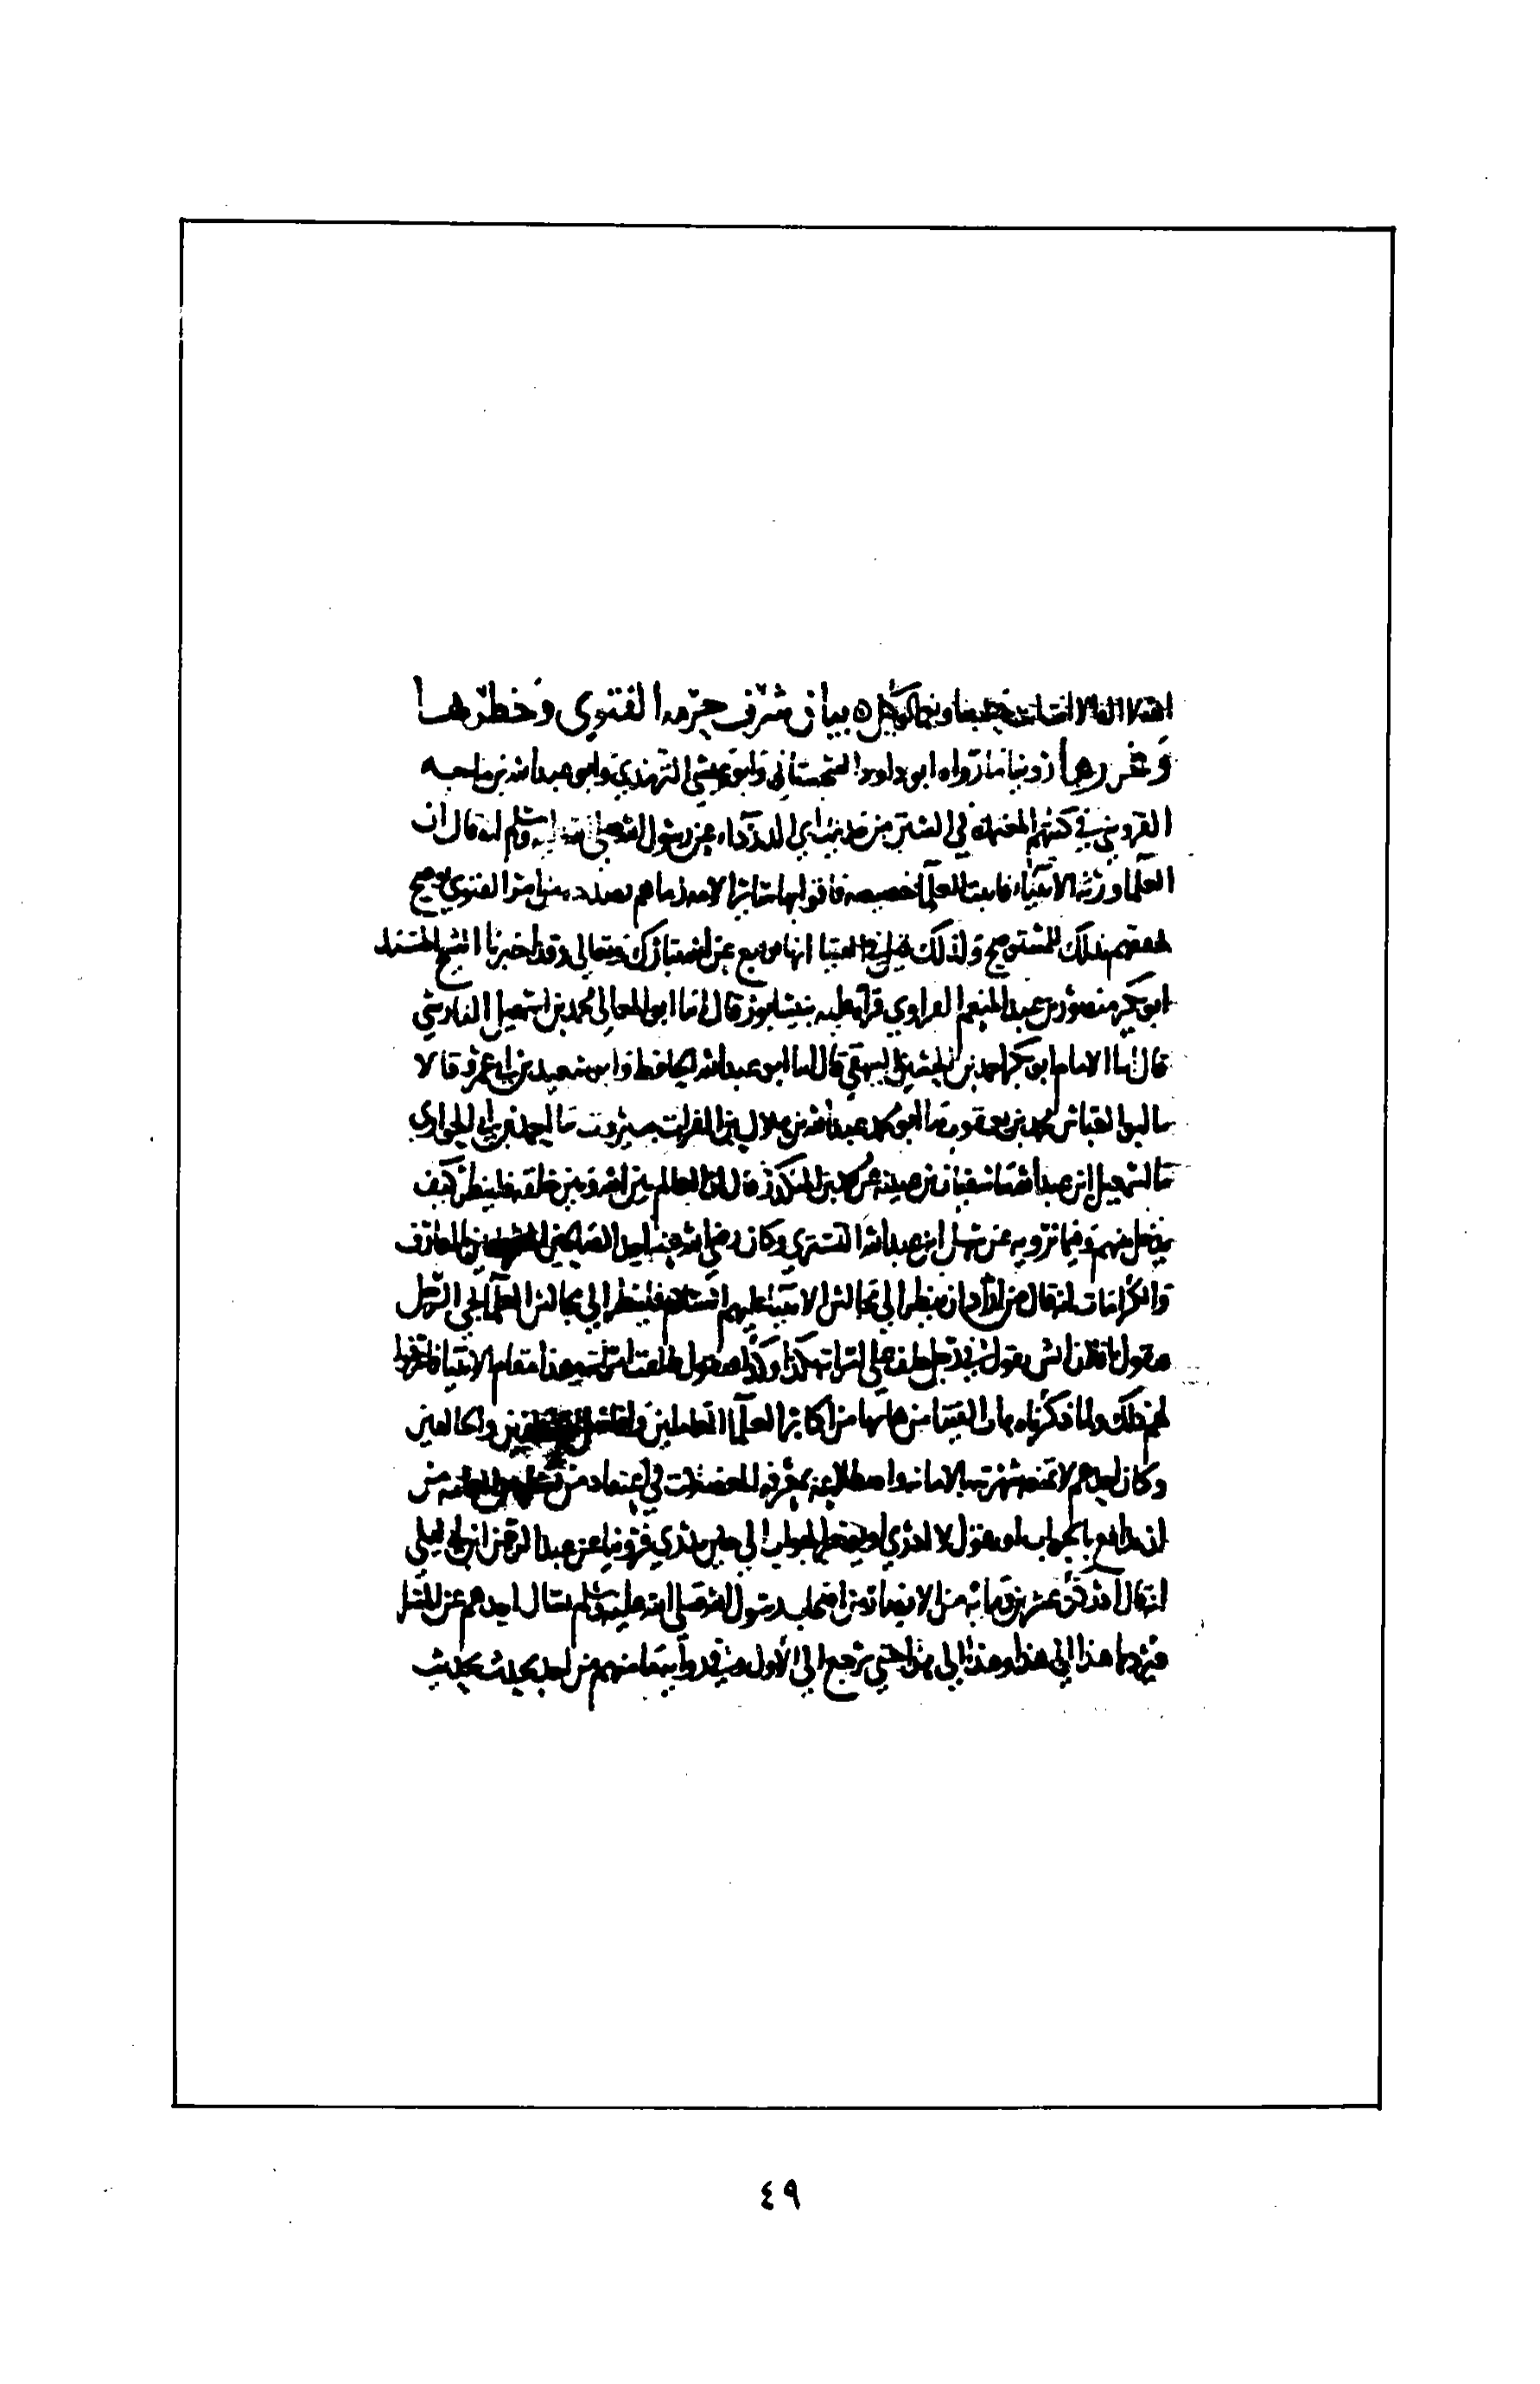 بيان شرف حرمة الفتوى وخطرها
وغررها روينا ما رواه ابو داود السجستاني وابو عيسى الترمذي وابو عبد الله بن ماجه
القزويني في كتبهم المعتمدة في السنن من حديث ابي الدرداء عن رسول الله صلى الله عليه وسلم انه قال ان
العلما ورثة الانبياء فاثبت للعلما خصيصة فاقوا بها سائر الامة وما هم بصدده من امر الفتوى يوضح
تحققهم بذلك للمستوضح ولذلك قيل في الفتيا انها توقيع عن الله تبارك وتعالى وقد اخبرنا الشيخ المسند
ابو بكر منصور بن عبد المنعم الفراوي قراة عليه بنيسابور قال انا ابو المعالي محمد بن اسمعيل الفارسي
قال انا الامام ابو بكر احمد بن الحسين البيهقي قال انا ابو عبد الله الحافظ وابو سعيد بن ابي عمرو قالا
ثنا ابو العباس محمد بن يعقوب ثنا ابو محمد عبد الله بن هلال بن الفرات ببيروت ثنا احمد بن ابي الحواري
ثنا اسمعيل ابن عبد الله ثنا سفيان بن عيينة عن محمد بن المنكدر قال ان العالم بين الله وبين خلقه فلينظر كيف
يدخل بينهم وفيما نرويه عن سهل ابن عبد الله التستري وكان رضي الله عنه احد الصالحين بالمعارف
والكرامات انه قال من اراد ان ينظر الى مجالس الانبياء عليهم السلام فلينظر الى مجالس العلما يجي الرجل
فيقول يا فلان ايش تقول في رجل حلف على امراته بكذا وكذا فيقول طلقت امراته وهذا مقام الانبيا فاعرفوا
لهم ذلك ولما ذكرناه هاب الفتيا من هابها من اكابر العلما العاملين وافاضل السالفين والخالفين
وكان احدهم لا تمنعه شهرته بالامانة واضطلاعه بمعرفة المعضلات في اعتقاد من من
ان يدافع بالجواب او يقول لا ادري او يؤخر الجواب الى حين يدري فروينا عن عبد الرحمن ابن ابي ليلى
انه قال ادركت عشرين وماية من الانصار من اصحاب رسول الله صلى الله عليه وسلم يسال احدهم عن المسلة
فيردها هذا الى هذا وهذا الى هذا حتى ترجع الى الاول وما منهم من احد يحدث بحديث
٤٩